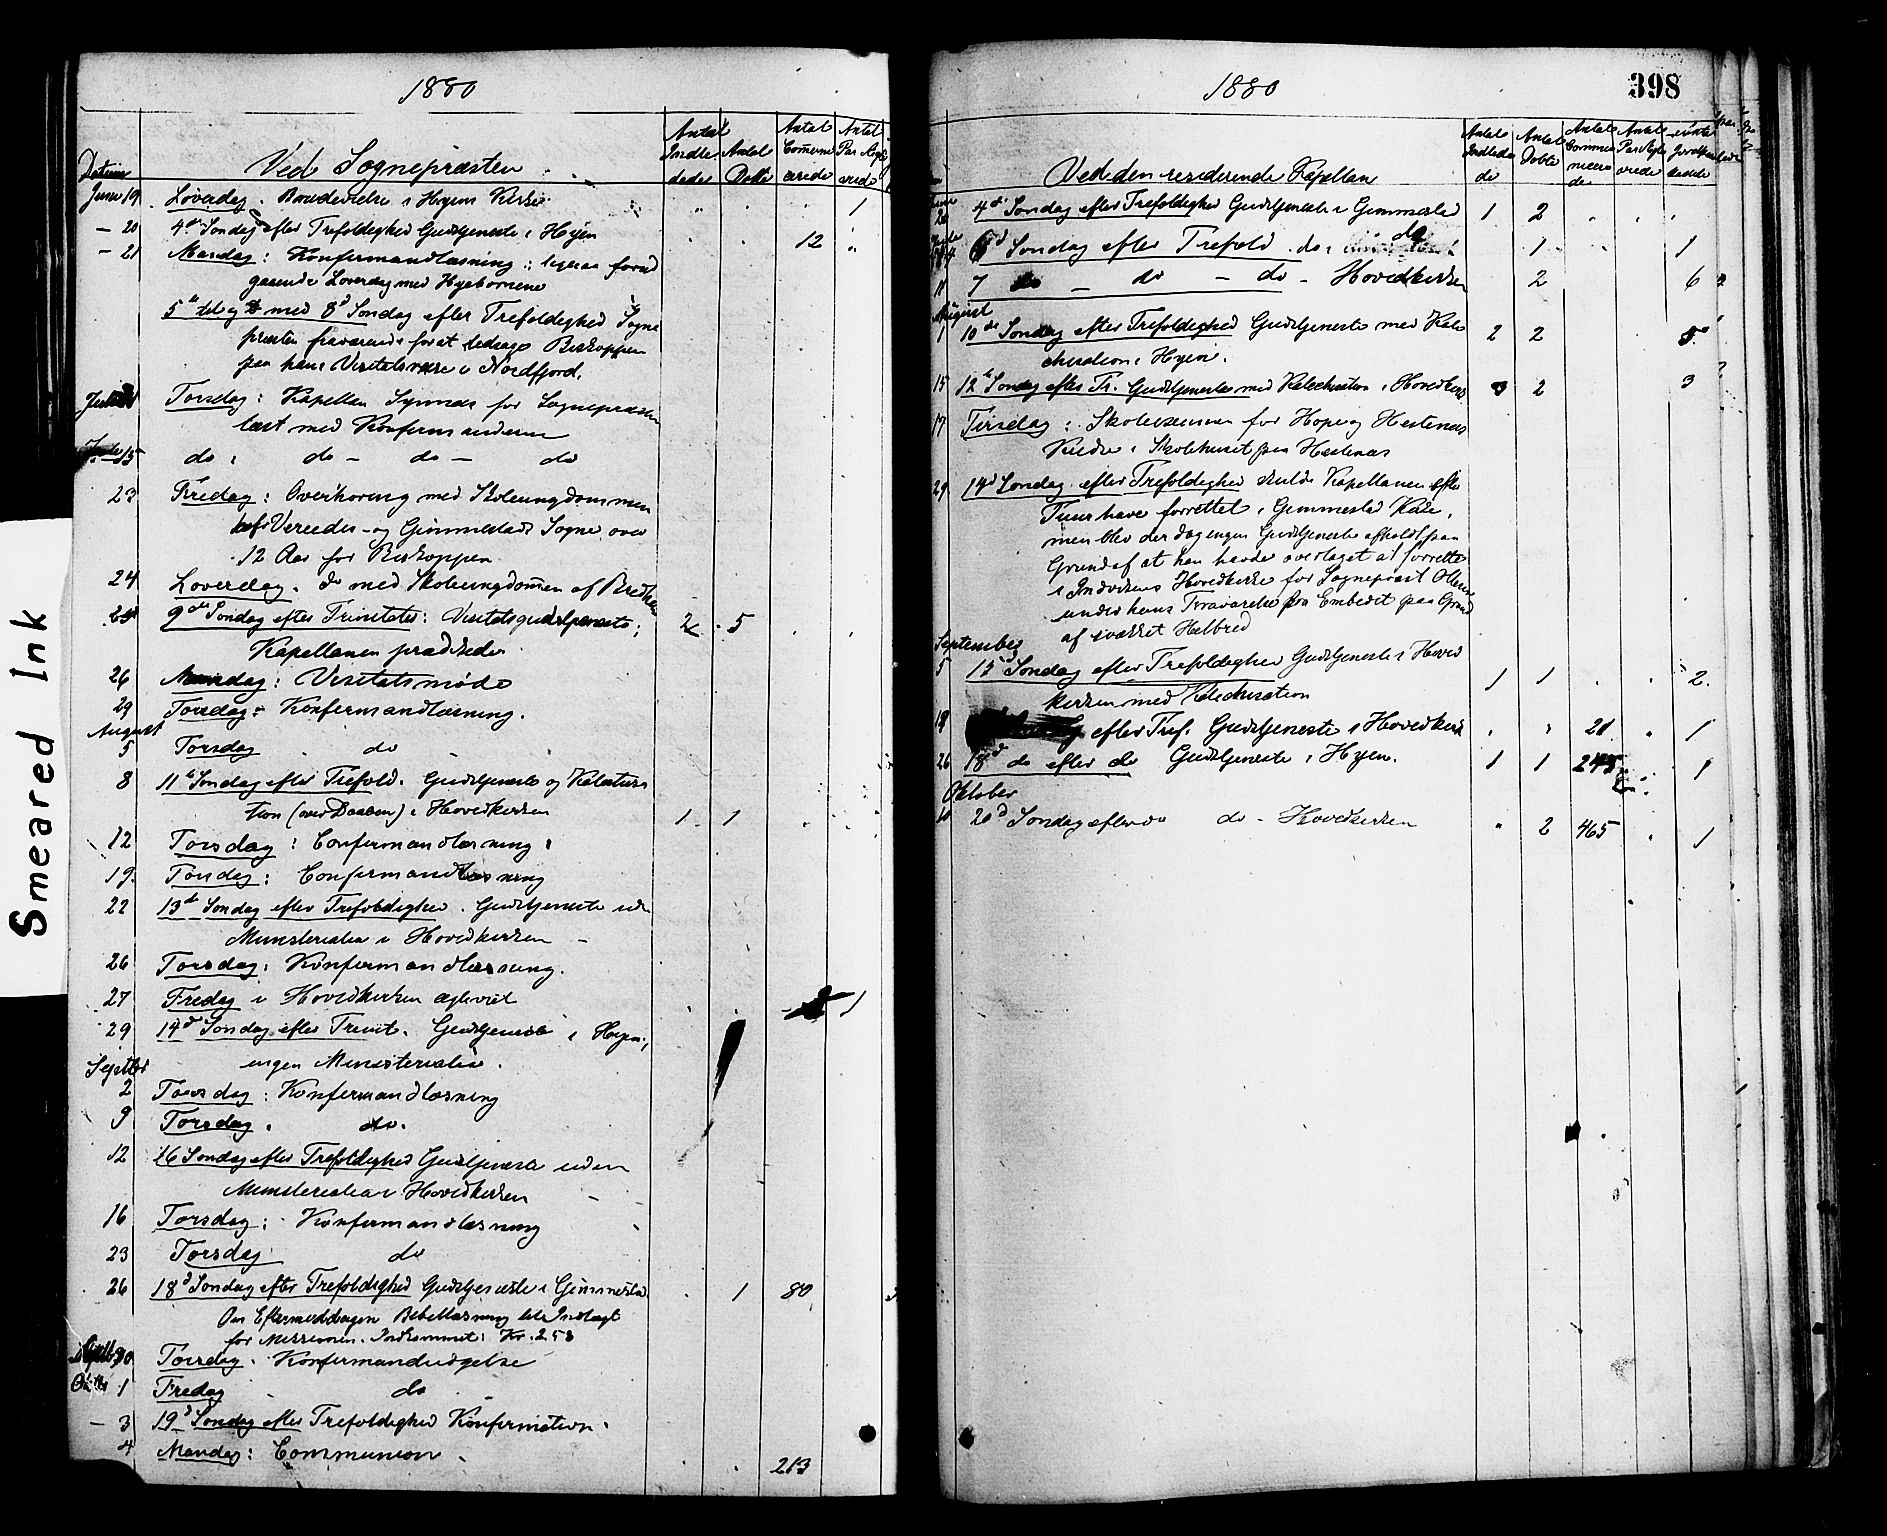 Smeared Ink
1880
Datum
Ved Sognepræsten
Antal Indledede
Antal Døbte
Antal Communicerede
Antal Par
Juni 19 Löverdag. Brudevielse i Hyens Kirke 1
- 20 4de Sondag efter Trefoldighed Gudstjeneste i Hyen 12
- 21 Mandag: Konfirmandlæsning; ligesaa foregaaende Loverdag med Hyebornene
5te til og med 8d Sondag efter Trefoldighed Sogne
præsten fraværende for at ledsage Biskoppen
paa hans Visitatsreise i Nordfjord.
Torsdag: Kapellan for Sognepræsten
læst med Konfirmanderne
15 do : do - do - do
23 Fredag: Overhoring med Skoleungdommen
af Vereide- og Gimmestad Sogne over
12 Aar for Biskoppen
24 Loverdag. do med Skoleungdommen af
25 9de Sondag efter Trinitatis: Visitatsgudstjeneste; 2 5
Kapellanen prædikede
26 Mandag: Visitatsmøde
29 Torsdag: Konfirmandlæsning.
August
5 Torsdag do
8 11te Sondag efter Trefold. Gudstjeneste og Katekisa
tion (over Daaben) i Hovedkirken 1 1
12 Torsdag: Confirmandlæsning.
19. Torsdag: Confirmandlæsning
22 13de Sondag efter Trefoldighed. Gudstjeneste uden
Ministerialia i Hovedkirken -
26 Torsdag: Konfirmandlæsning.
27 Fredag i Hovedkirken ægteviet 1
29 14d Sondag efter Trinit. Gudstjeneste i Hyen;
ingen Ministerialia.
Septbr
2 Torsdag: Konfirmandlæsning
9 Torsdag. do.
12 16 Sondag efter Trefoldighed Gudstjeneste uden
Ministerialia i Hovedkirken
16 Torsdag: Konfirmandlæsning
23 Torsdag do
26 18d Sondag efter Trefoldighed Gudstjeneste i Gimmestad 1 80
Om Eftermiddagen Bibellæsning til Indtægt
for Missionen. Indkommet: Kr. 2 58
Septbr 30 Torsdag. Konfirmandudgelse
Oktbr 1 Fredag do
- 3 19d Sondag efter Trefoldighed Konfirmation.
4 Mandag: Communion. 213
1880
398
Ved den residerende Kapellan
Antal Indledede
Antal Døbte
Antal Communicerede
Antal Par
20 4de Sondag efter Trefoldighed Gudstjeneste i Gimmestad 1 2
6d Sondag efter Trefold. do i do 1 1
11 7 do - do - do - Hovedkirken 2 6
August
1 10de Sondag efter Trefoldighed Gudstjeneste med Kate 2 2 5
chisation i Hyen.
15 12te Sondag efter Tr. Gudstjeneste med Katechisation i Hovedkirk 3 2 3
17 Tirsdag: Skoleexamen for Hope og Hestenæs
Kredse i Skolehuset paa Hestenæs
29 14d Sondag efter Trefoldighed skulde Kapellanen efter
Tuur have forrettet i Gimmestad Kirke,
men blev der dog ingen Gudstjeneste afholdt paa
Grund af at han havde overtaget at forrette
i Indvikens Hovedkirke for Sognepræst
under hans Fraværelse fra Embedet paa Grund
af svækket Helbred
September
5 15d Sondag efter Trefoldighed Gudstjeneste i Hoved
kirken med Katechisation 1 1 2.
efter Tref. Gudstjeneste i Hovedkirk 21 1
26 18d do efter do Gudstjeneste i Hyen. 1 1 1
Oktober
10 20d Sondag efter do do - Hovedkirken 2 465 1